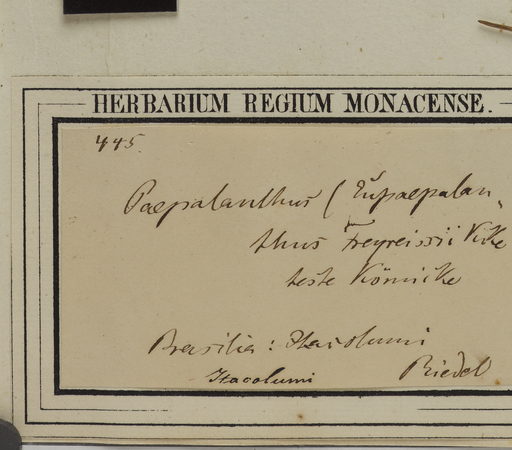 HERBARIUM REGIUM MONACENSE.
445.
Paepalanthus (Eupaepalan-
thus Freyreissii Kcke
teste Körnicke
Brasilia: Itacolumi
Itacolumi Riedel